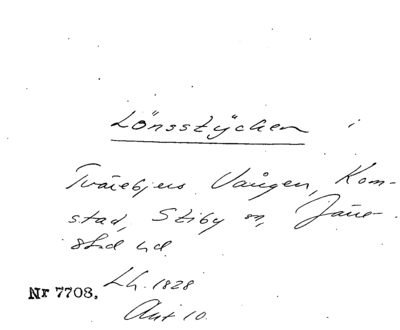 Lönsstycken i
Tvärebjers Vången, Kom-
stad, Stiby sn, Järre-
stad hd.
Lh. 1828
Nr 7708.
Akt 10.